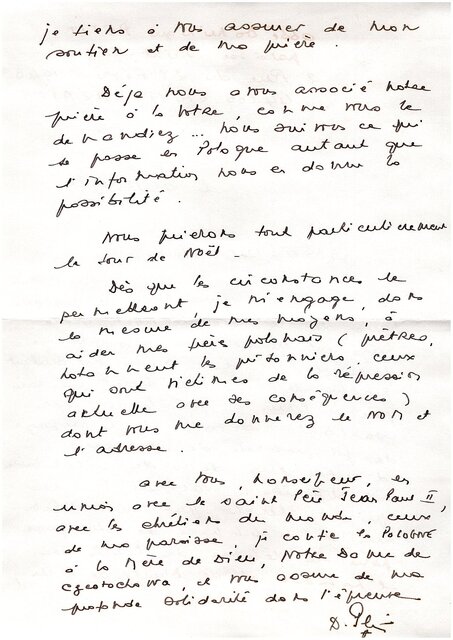 je tiens à vous assurer de mon
soutien et de ma prière.
Déjà nous avons associé notre
prière à la vôtre, comme vous le
demandiez ... nous suivons ce qui
se passe en Pologne autant que
l'information nous en donne la
possibilité.
Nous prierons tout particulièrement
le jour de Noël.
Dès que les circonstances le
permettront, je m'engage, dans
la mesure de mes moyens, à
aider mes frères polonais (prêtres,
notamment les prisonniers, ceux
qui sont victimes de la répression
actuelle avec ses conséquences)
dont vous me donnerez le NOM et
l'adresse.
avec vous, Monseigneur, en
union avec le Saint Père Jean Paul II,
avec les chrétiens du monde, ceux
de ma paroisse, je confie la POLOGNE
à la Mère de Dieu, Notre Dame de
Czestochowa, et vous assure de ma
profonde solidarité dans l'épreuve
D.